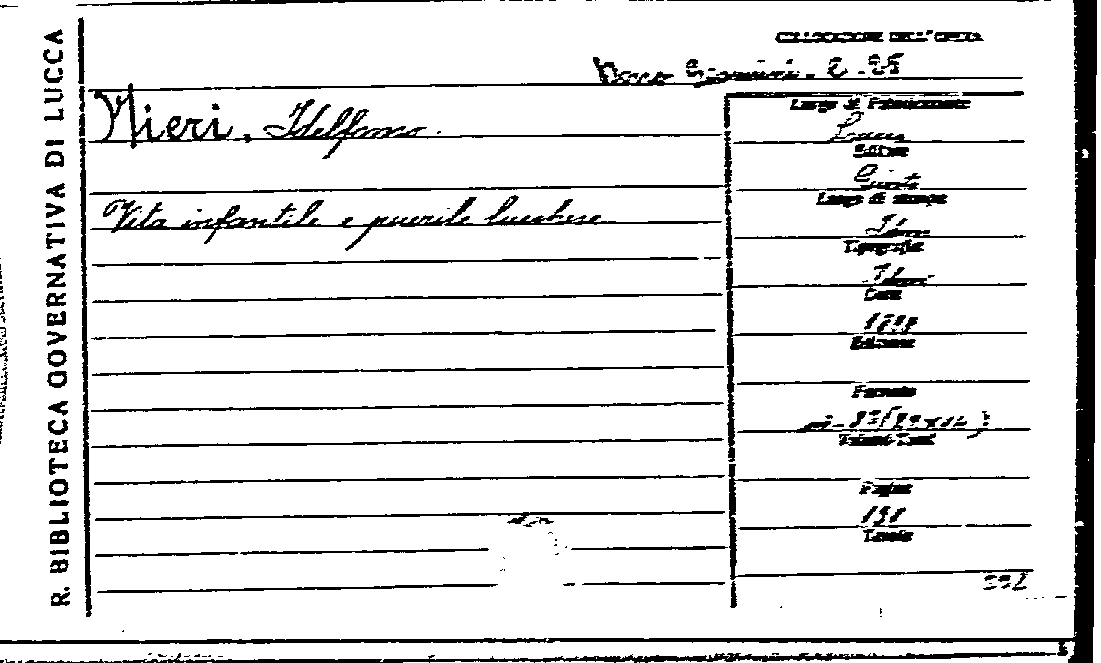 R. BIBLIOTECA GOVERNATIVA DI LUCCA
COLLOCAZIONE DELL'OPERA
Nieri, Idelfonso.
Vita infantile e puerile lucchese
Luogo di Pubblicazione
Lucca
Editore
Giusti
Luogo di stampa
Idem
Tipografia
Idem
Data
Edizione
Formato
Volumi-Tomi
Pagine
Tavole